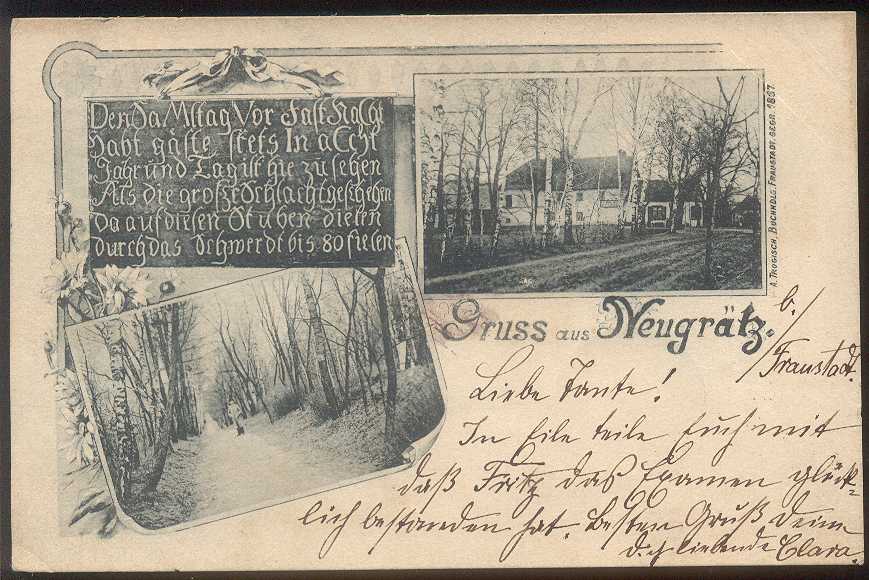 Den Da Mltag Vor Fast NaCht
Habt gäste stets In aCcht
Jahr und Tag ist hie zu sehen
Als die große Schlacht geschehen
Da auf diesen Stuben dielen
durch das Schwerdt bis 80 fielen
A. TROGISCH, BUCHHDLG. FRAUSTADT. GEGR. 1867.
Gruss aus Neugrätz.
b./
Fraustadt.
Liebe Tante!
In Eile teile Euch mit
daß Fritz das Examen glück-
lich bestanden hat. Besten Gruß deine
d. ch liebende Clara.